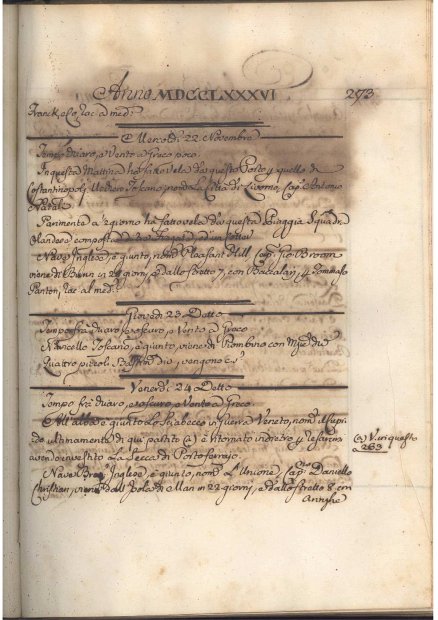 Anno MDCCLXXXVI 273
Franck, e Co, rac a med:
Mercordi 22 Novembre
Tempo chiaro, e Vento a Greco poco
In questa Mattina ha fatto vela da questo Porto p quello di
Costantinopoli Veliero Toscano la Città di Livorno, Cap. Antonio
Parimente a giorno ha fatto vela da questa Spiaggia Squadra
Olandese composta
Nave Inglese, è giunto, nom Pleasant Hill, Cap. Gio Brown
viene di in 29 giorni, e dallo stretto 7, con Baccalari, p Tommaso
Panton, rac al med:
Giovedi 23 Detto
Tempo fra chiaro, e oscuro, e Vento a Greco
Navicello Toscano, è giunto, viene di Piombino con
Quattro piccoli vengono
Venerdi 24 Detto
Tempo fra chiaro, e oscuro, e Vento a Greco
All'alba è giunto lo Sciabecco in Guerra Veneto, nom il Cupi
do ultimamente di qui partito (a) è ritornato indietro p
avendo investito alla Secca di Portoferrajo
(a) V. in questo
a 263
Nave Inglese, è giunto, nom L'Unione, Cap. Daniello
Christian, viene dall'Isola di Man in 22 giorni, e dallo stretto 8 con
Aringhe